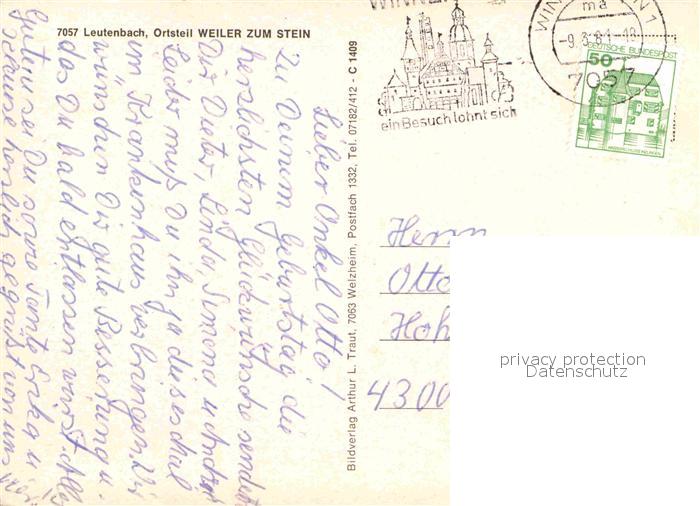 7057 Leutenbach, Ortsteil WEILER ZUM STEIN
Lieber Onkel Otto!
Zu Deinem Geburtstag die
herzlichsten Glückwünsche sendet
Dir Dieter, Linda, Simone u.
Leider mußt Du ihn ja dieses mal
im Krankenhaus verbringen. Wir
wünschen Dir gute Besserung u.
das Du bald entlassen wirst. Alles
Gute sei Du sowie Tante Erika u.
herzlich gegrüßt von uns
Bildverlag Arthur L. Traut, 7063 Welzheim, Postfach 1332, Tel. 07182/412 - C 1409
ein Besuch lohnt sich
WINN
1
ma
-9.3.81-18
7057
DEUTSCHE BUNDESPOST
50
Herrn
Otto
Hoh
4300
privacy protection
Datenschutz